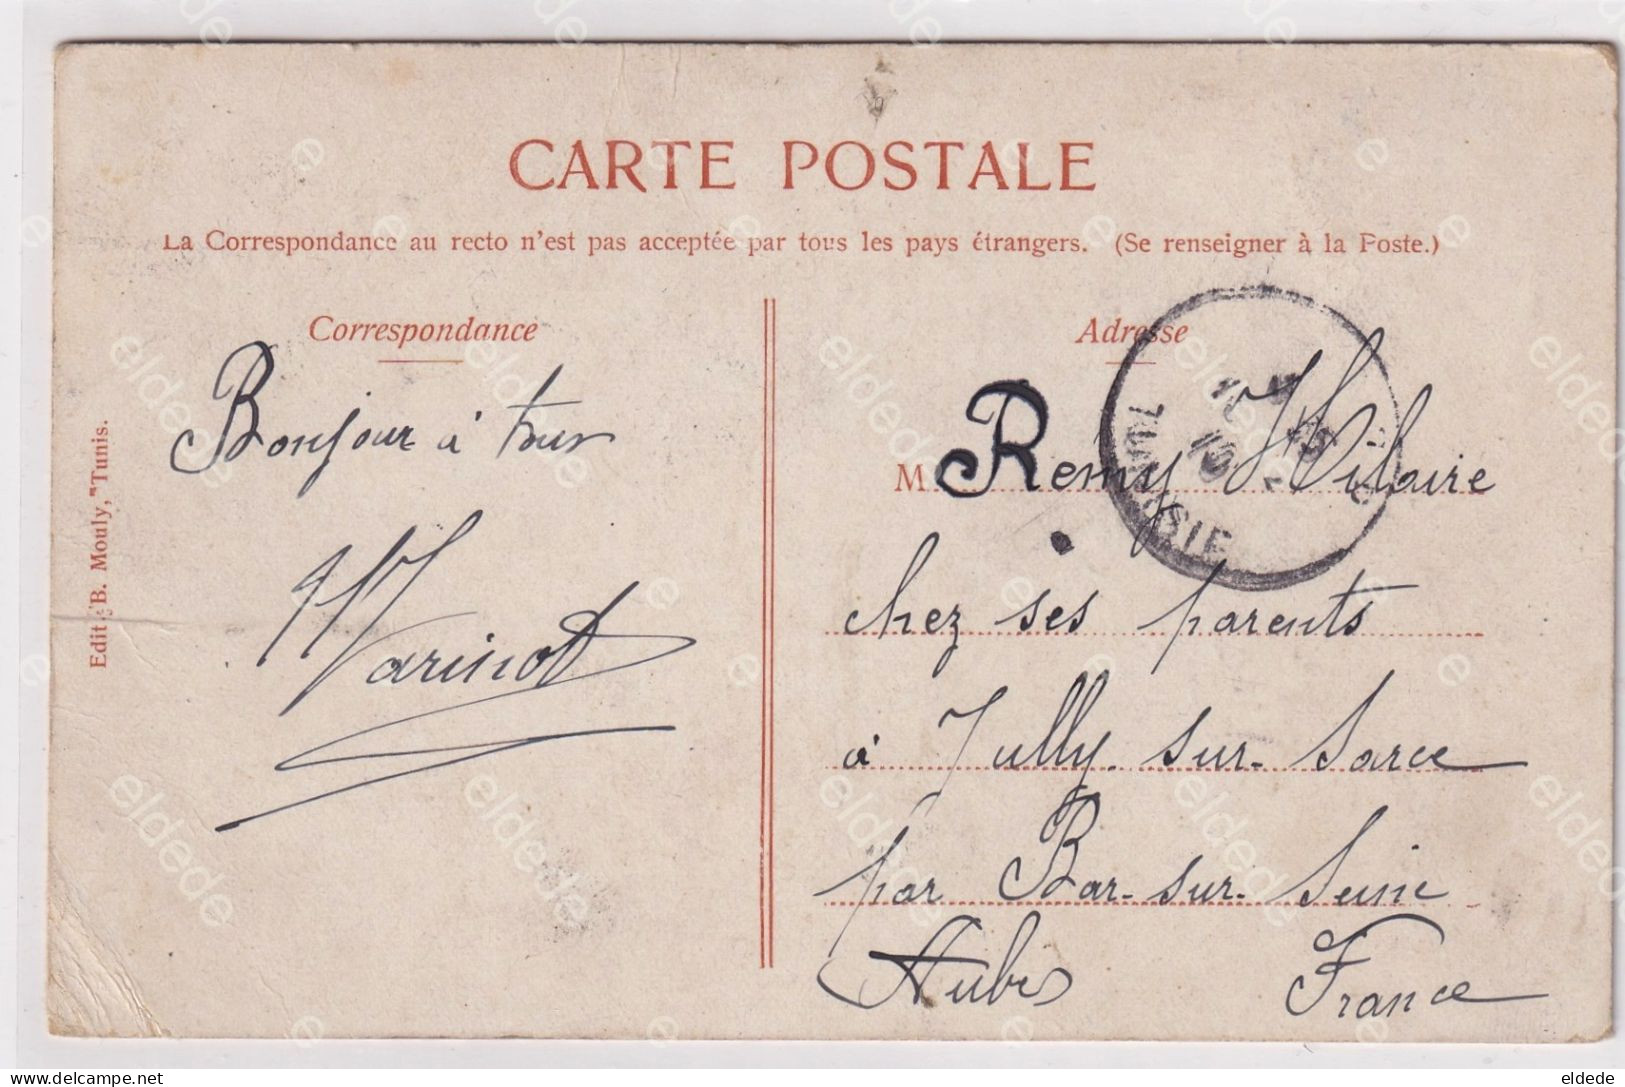 CARTE POSTALE
La Correspondance au recto n'est pas acceptée par tous les pays étrangers. (Se renseigner à la Poste.)
Correspondance
Bonjour à tous
Varinot
Edit B. Mouly, Tunis.
Adresse
M Remy Hilaire
chez ses parents
à Jully-sur-Sarce
par Bar-sur-Seine
Aube France
eldede